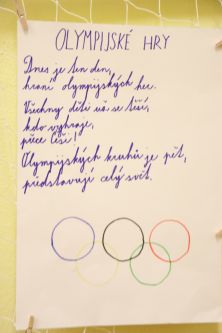 OLYMPIJSKÉ HRY
Dnes je ten den,
hraní olympijských her.
Všechny děti už se těší,
kdo vyhraje,
přece Češi!
Olympijských kruhů je pět,
představují celý svět.